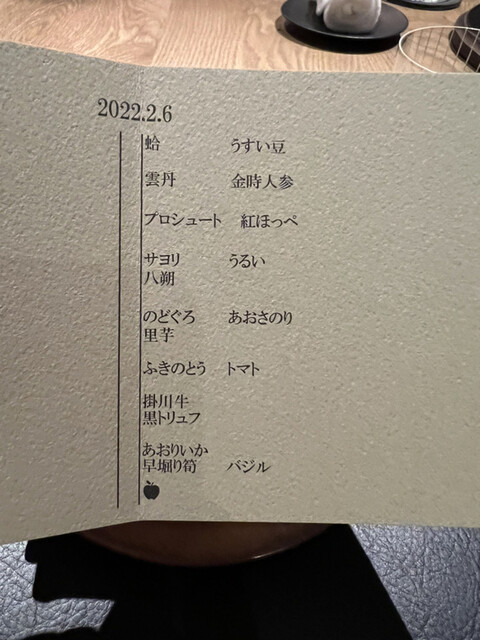 2022.2.6
蛤 うすい豆
雲丹 金時人参
プロシュート 紅ほっぺ
サヨリ うるい
八朔
のどぐろ あおさのり
里芋
ふきのとう トマト
掛川牛
黒トリュフ
あおりいか
早堀り筍 バジル